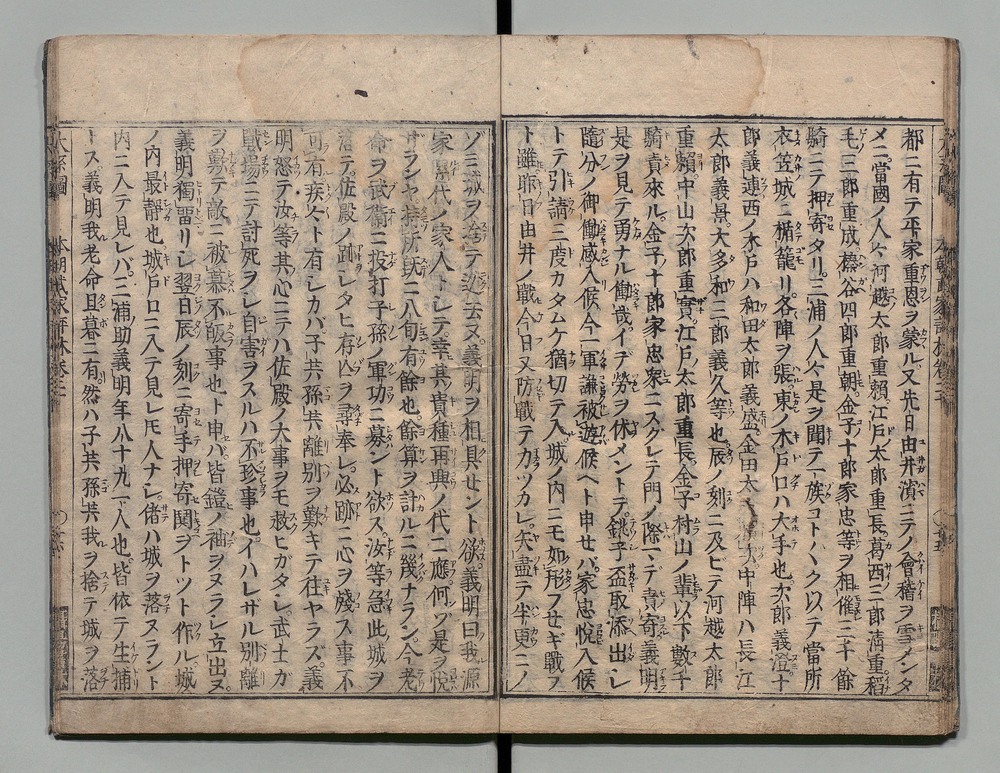 都ニ有テ平家重恩ヲ蒙ル又先日由井濱ニテノ會稽ヲ雪メンタ
メニ當國ノ人々河越太郎重頼江戸太郎重長葛西三郎清重稻
毛三郎重成榛谷四郎重朝金子十郎家忠等ヲ相催ニ三千餘
騎ニテ押寄タリ三浦ノ人々是ヲ聞テ一族コト〱ク以テ當所
衣笠城ニ楯籠リ各陣ヲ張東ノ木戸口ハ大手也次郎義澄十
郎義連西ノ木戸ハ和田太郎義盛金田大夫頼次中陣ハ長江
太郎義景大多和三郎義久等也辰ノ刻ニ及ヒテ河越太郎
重頼中山次郎重實江戸太郎重長金子村山ノ輩以下數千
騎責來ル金子十郎家忠衆ニスクレテ門ノ際ニテ責寄義明
是ヲ見テ勇ナル働哉イデ労ヲ休メントテ銚子盃取添出シ
隨分ノ御働感入候今一軍謙被遊候ヘト申セハ家忠悦入候
トテ引請三度カタムケ猶切テ入城ノ内ニモ如形フセギ戰フ
ト雖昨日由井ノ戰今日又防戰テカツカレ矢盡テ半更ニノ
ゾミ城ヲ捨テ逃去又義明ヲ相具セント欲義明曰我源
家累代ノ家人トレテ幸其貴種再興ノ代ニ應何ゾ是ヲ悦
ザランヤ持所既ニ八旬有餘也餘算ヲ計ルニ幾ナラン今老
命ヲ武衞ニ投打子孫ノ軍功ニ募ント欲ス汝等急此城ヲ
落テ佐殿ノ跡ヲ尋レタヒ存亡ヲ尋奉レ必跡ニ心ヲ殘ス事不
可有疾々ト有シカバ子共孫共離別ヲ歎キテ往ヤラズ義
明怒テ汝等其心ニテハ佐殿ノ大事ヲモ救ヒガタシ武士カ
戰場ニテ討死ヲシ自害ヲスルハ不珍事也イハレザル別離
ヲ歎テ敵ニ被慕不叶事也ト申ハ皆鎧ノ袖ヲヌラシ立出ヌ
義明獨畱リシ翌日辰ノ刻ニ寄手押寄鬨ヲトツト作ル城
ノ内最靜也城戸口ニ入テ見レトモ人ナシ偖ハ城ヲ落ヌラント
内ニ入テ見レバ三浦助義明年八十九一人也皆依テ生捕
トス義明我老命旦暮ニ有然ハ子共孫共我ヲ捨テ城ヲ落